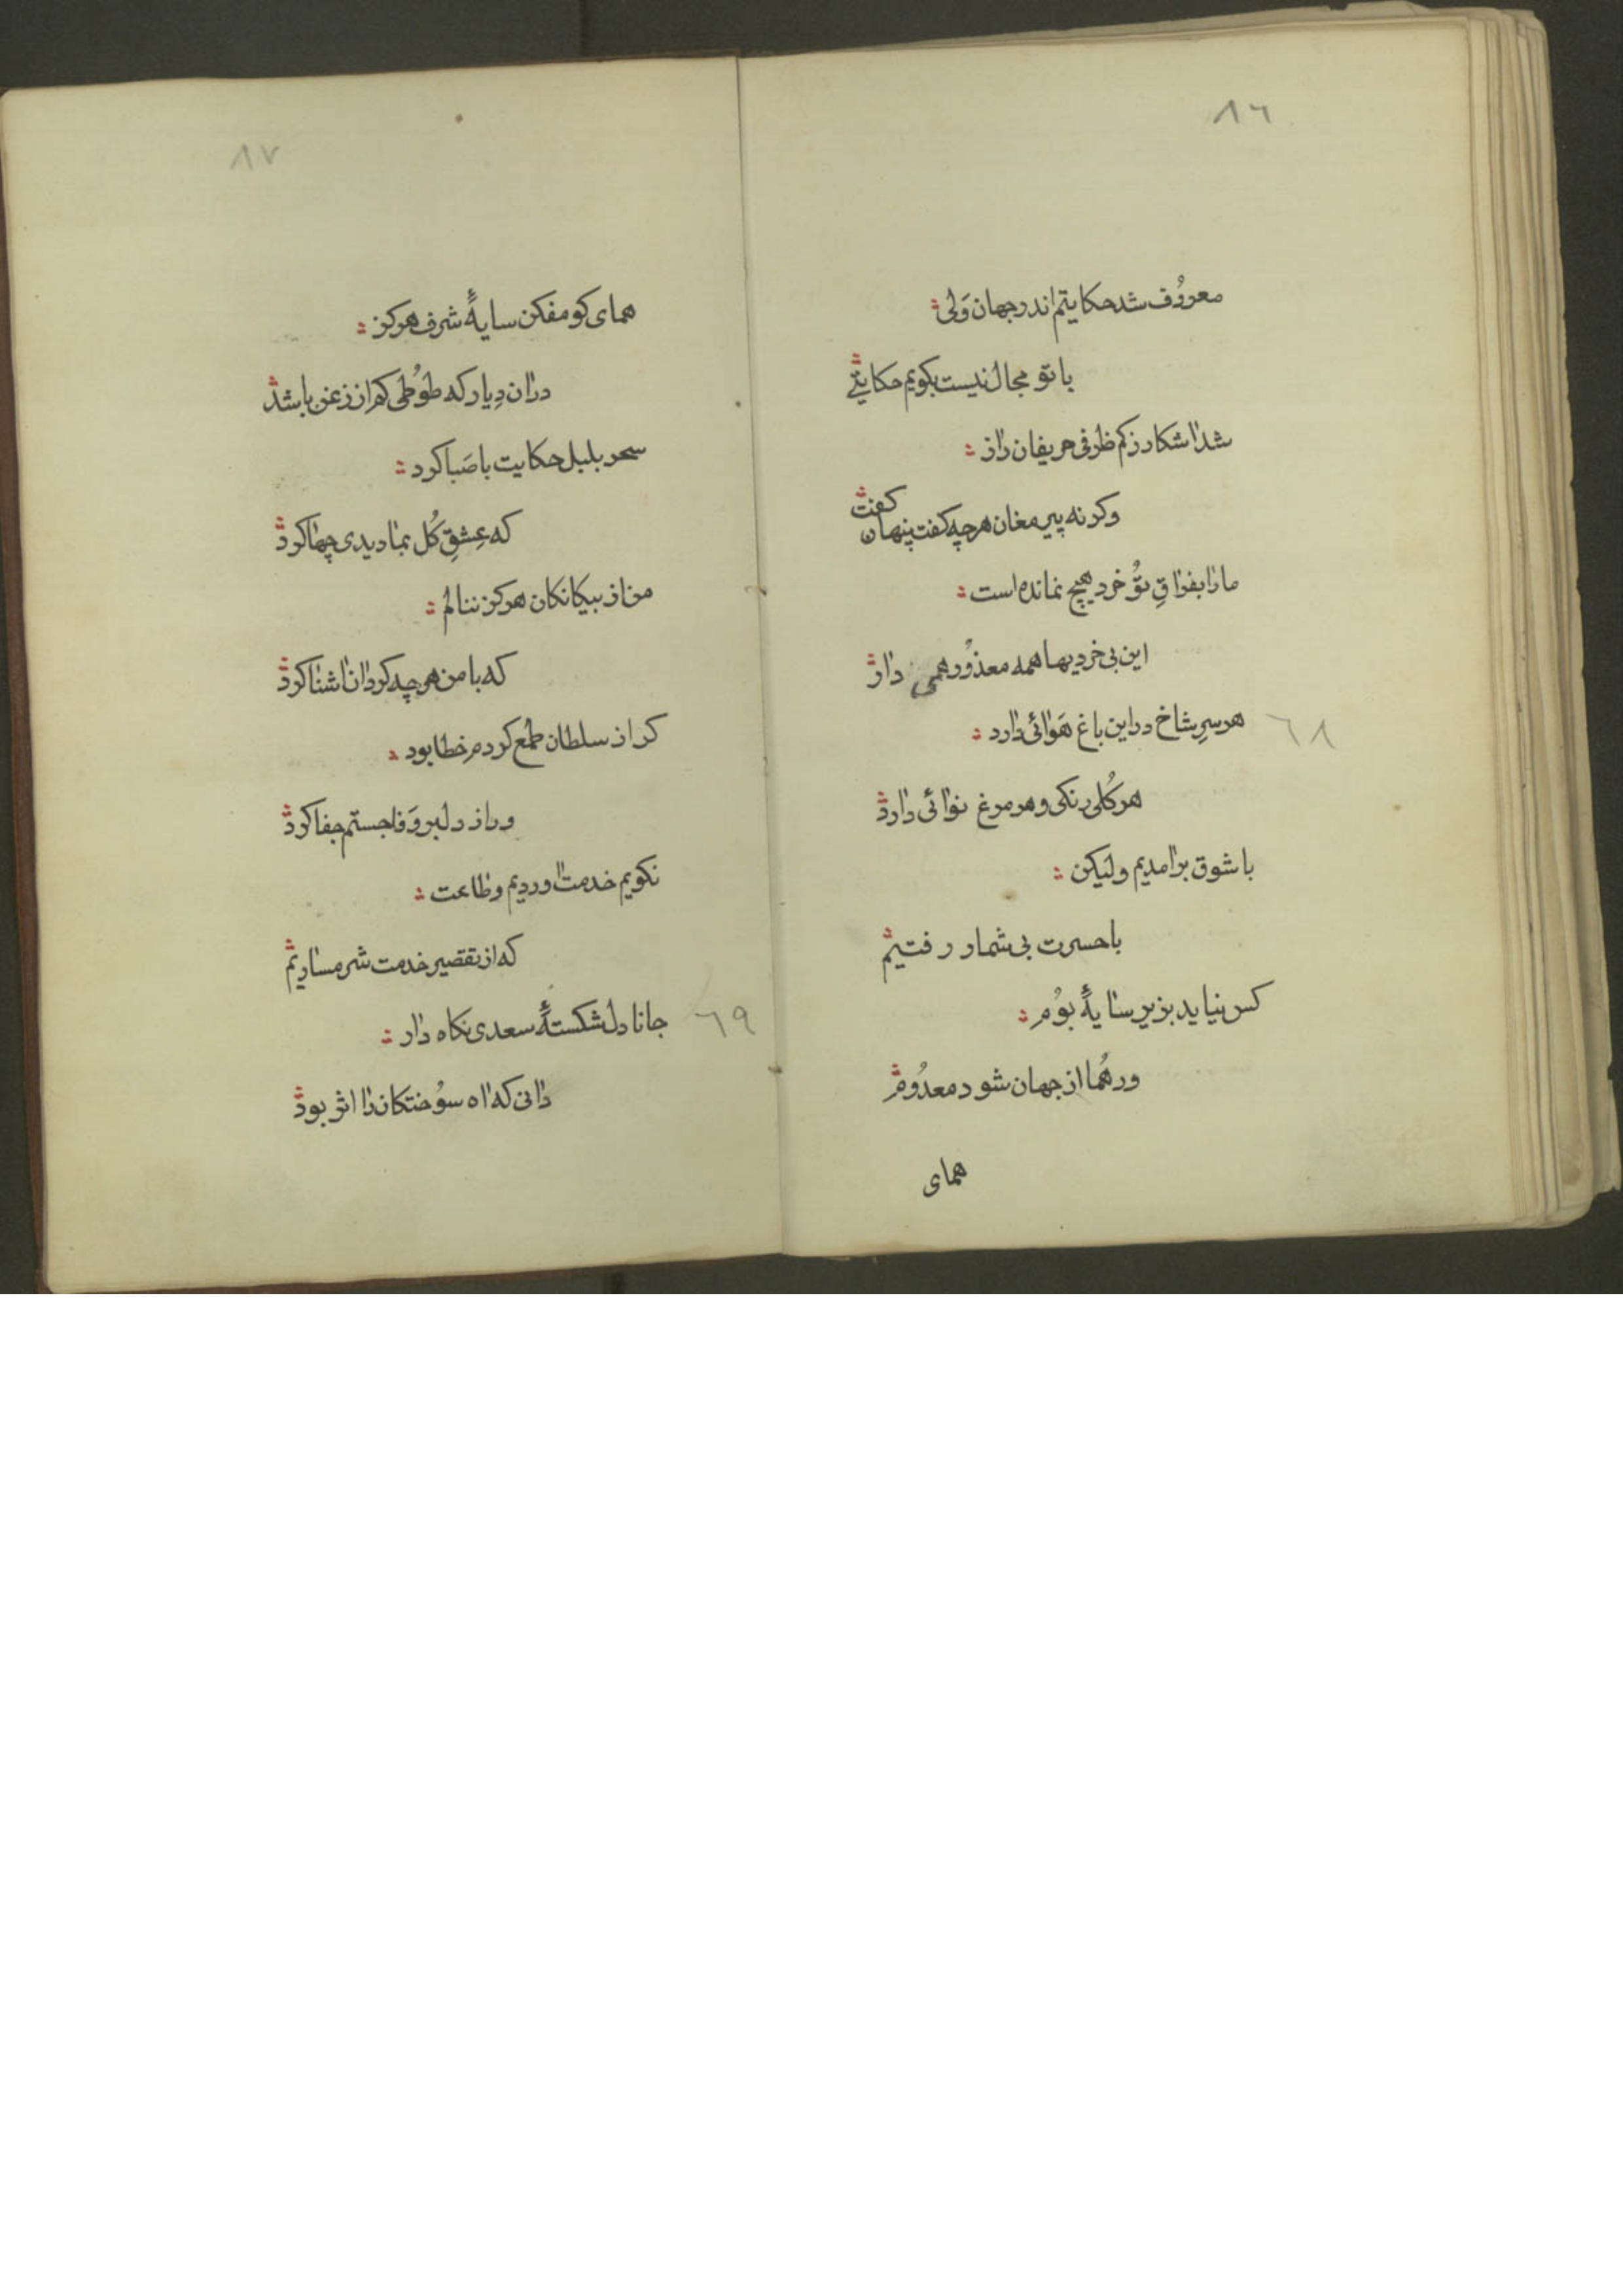 ٨٦
معروُف شد حکایتم اندر جهان وَلی
با تو مجال نیست بکویم حکایتے
شد اشکار ز کم ظرفی حریفان راز
وکرنه پیر مغان هرچه کفت پنهان کفت
ما را بفراقِ توُ خرد هیچ نمانده است
این بی خردیها همه معذوُر همی دار
٦٨
هر سرِ شاخ در این باغ هَوائی دارد
هر کُلی رنکی و هر مرغ نوائی دارد
با شوق برامدیم ولیکن
با حسرت بی شمار رفتیم
کس نیاید بزیر سایهٔ بوُم
ور هُما از جهان شود معدوُم
همای
٨٧
همای کو مفکن سایهٔ شرف هرکز
دران دِیار که طوُطی کم از زغن باشد
سحر بلبل حکایت با صَبا کرد
که عِشقِ کُل بما دیدی چها کرد
من از بیکانکان هرکز ننالم
که با من هرچه کرد ان اشنا کرد
کر از سلطان طمع کردم خطا بود
ور از دلبر وَفا جستم جفا کرد
نکویم خدمت اوردیم و طاعت
که از تقصیر خدمت شرمساریم
٦٩
جانا دل شکستهٔ سعدی نکاه دار
دانی که اه سوُختکان را اثر بود